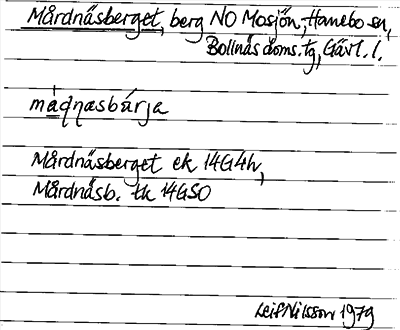 Mårdnäsberget, berg NO Mosjön, Hanebo sn,
Bollnäs doms. tg, Gävl. l.
måɖɳæsbárja
Mårdnäsberget ek 14G4h,
Mårdnäsb. tk 14GSO
Leif Nilsson 1979